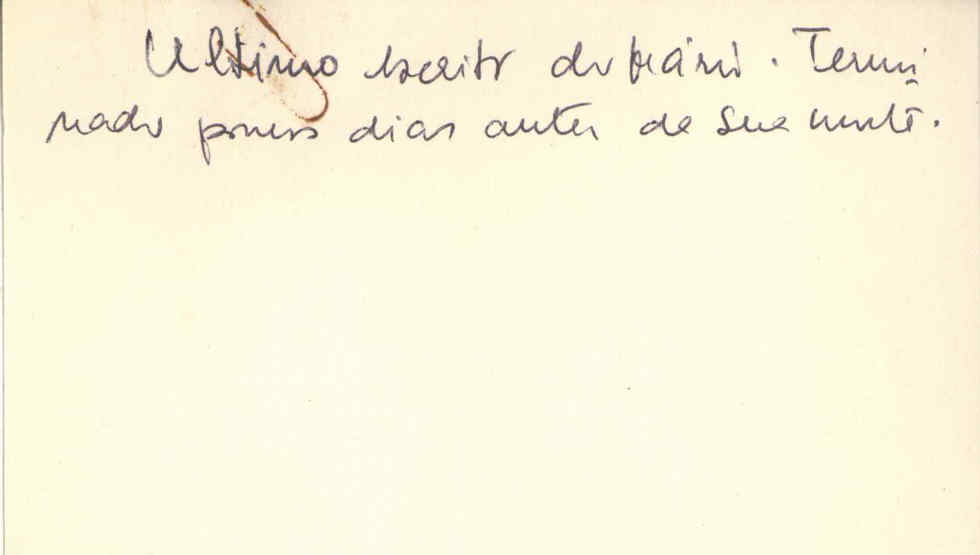 Ultimo escrito do Mário. Termi
nado poucos dias antes de sua morte.